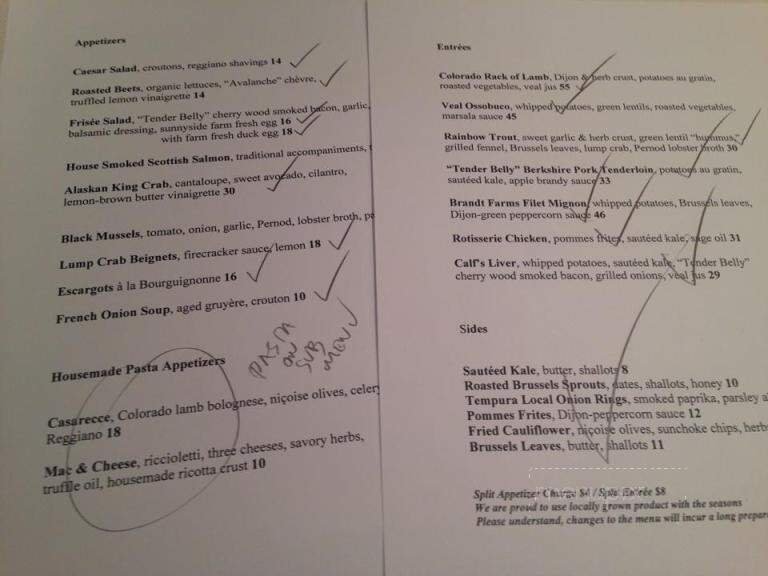 Appetizers
Caesar Salad, croutons, reggiano shavings 14
Roasted Beets, organic lettuces, “Avalanche” chèvre,
truffled lemon vinaigrette 14
Frisée Salad, “Tender Belly” cherry wood smoked bacon, garlic,
balsamic dressing, sunnyside farm fresh egg 16
with farm fresh duck egg 18
House Smoked Scottish Salmon, traditional accompaniments,
Alaskan King Crab, cantaloupe, sweet avocado, cilantro,
lemon-brown butter vinaigrette 30
Black Mussels, tomato, onion, garlic, Pernod, lobster broth, pa
Lump Crab Beignets, firecracker sauce, lemon 18
Escargots à la Bourguignonne 16
French Onion Soup, aged gruyère, crouton 10
PASTA
ON
SUB
MENU
Housemade Pasta Appetizers
Casarecce, Colorado lamb bolognese, niçoise olives, celery
Reggiano 18
Mac & Cheese, riccioletti, three cheeses, savory herbs,
truffle oil, housemade ricotta crust 10
Entrées
Colorado Rack of Lamb, Dijon & herb crust, potatoes au gratin,
roasted vegetables, veal jus 55
Veal Ossobuco, whipped potatoes, green lentils, roasted vegetables,
marsala sauce 45
Rainbow Trout, sweet garlic & herb crust, green lentil “hummus,”
grilled fennel, Brussels leaves, lump crab, Pernod lobster broth 30
“Tender Belly” Berkshire Pork Tenderloin, potatoes au gratin,
sautéed kale, apple brandy sauce 33
Brandt Farms Filet Mignon, whipped potatoes, Brussels leaves,
Dijon-green peppercorn sauce 46
Rotisserie Chicken, pommes frites, sautéed kale, sage oil 31
Calf's Liver, whipped potatoes, sautéed kale, “Tender Belly”
cherry wood smoked bacon, grilled onions, veal jus 29
Sides
Sautéed Kale, butter, shallots 8
Roasted Brussels Sprouts, dates, shallots, honey 10
Tempura Local Onion Rings, smoked paprika, parsley a
Pommes Frites, Dijon-peppercorn sauce 12
Fried Cauliflower, niçoise olives, sunchoke chips, herb
Brussels Leaves, butter, shallots 11
Split Appetizer Charge $4 / Split Entrée $8
We are proud to use locally grown product with the seasons
Please understand, changes to the menu will incur a long prepar